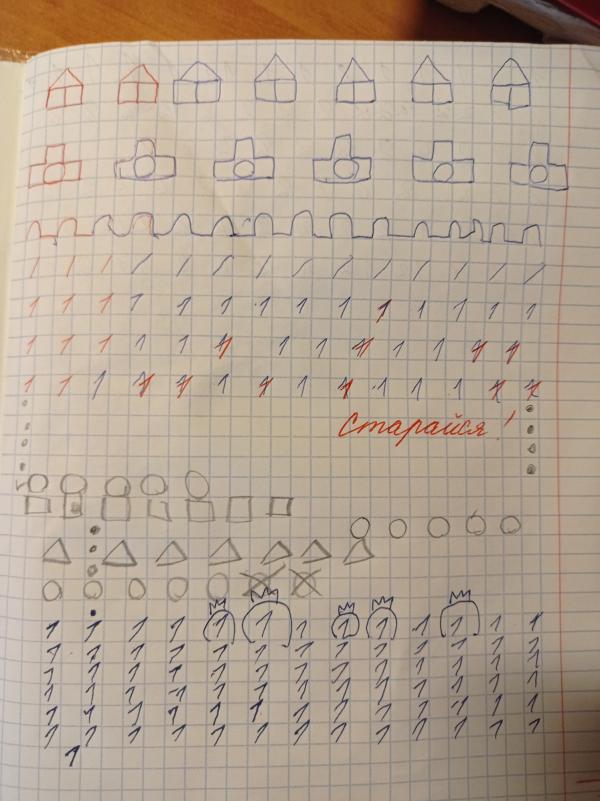 / / / / / / / / / / / / / /
1 1 1 1 1 1 1 1 1 1 1 1 1 1
1 1 1 1 1 1 1 1 1 1 1 1 1
1 1 1 1 1 1 1 1 1 1 1 1 1 1
Старайся!
1 1 1 1 1 1 1 1 1 1 1 1 1
1 1 1 1 1 1 1 1 1 1 1 1 1
1 1 1 1 1 1 1 1 1 1 1 1 1
1 1 1 1 1 1 1 1 1 1 1 1 1
1 1 1 1 1 1 1 1 1 1 1 1 1
1 1 1 1 1 1 1 1 1 1 1 1 1
1